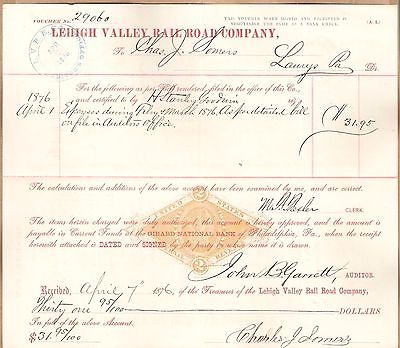 VOUCHER No. 29060
THIS VOUCHER WHEN SIGNED AND RECEIPTED IS
NEGOTIABLE THE SAME AS A BANK CHECK.
(A. 2.)
LEHIGH VALLEY RAIL ROAD COMPANY,
To Chas. J. Somers
Laurys Pa Dr.
For the following as per Bill rendered, filed in the office of this Co.,
and certified to by H Stanley Goodwin 187
1876
April 1 Expenses during Feby & March 1876. As per detailed bill
on file in Auditors Office. $ 31.95
The calculations and additions of the above account have been examined by me, and are correct.
CLERK.
The items herein charged were fully authorized, this amount is hereby approved, and the amount is
payable in Current Funds at the GIRARD NATIONAL BANK of Philadelphia, Pa., when the receipt
herewith attached is DATED and SIGNED by the party in whose name it is drawn.
John B. Garrett
AUDITOR.
Received, April 7" 1876 of the Treasurer of the Lehigh Valley Rail Road Company,
Thirty one 95/100 DOLLARS
In full of the above Account.
$31.95/100 Charles J. Somers